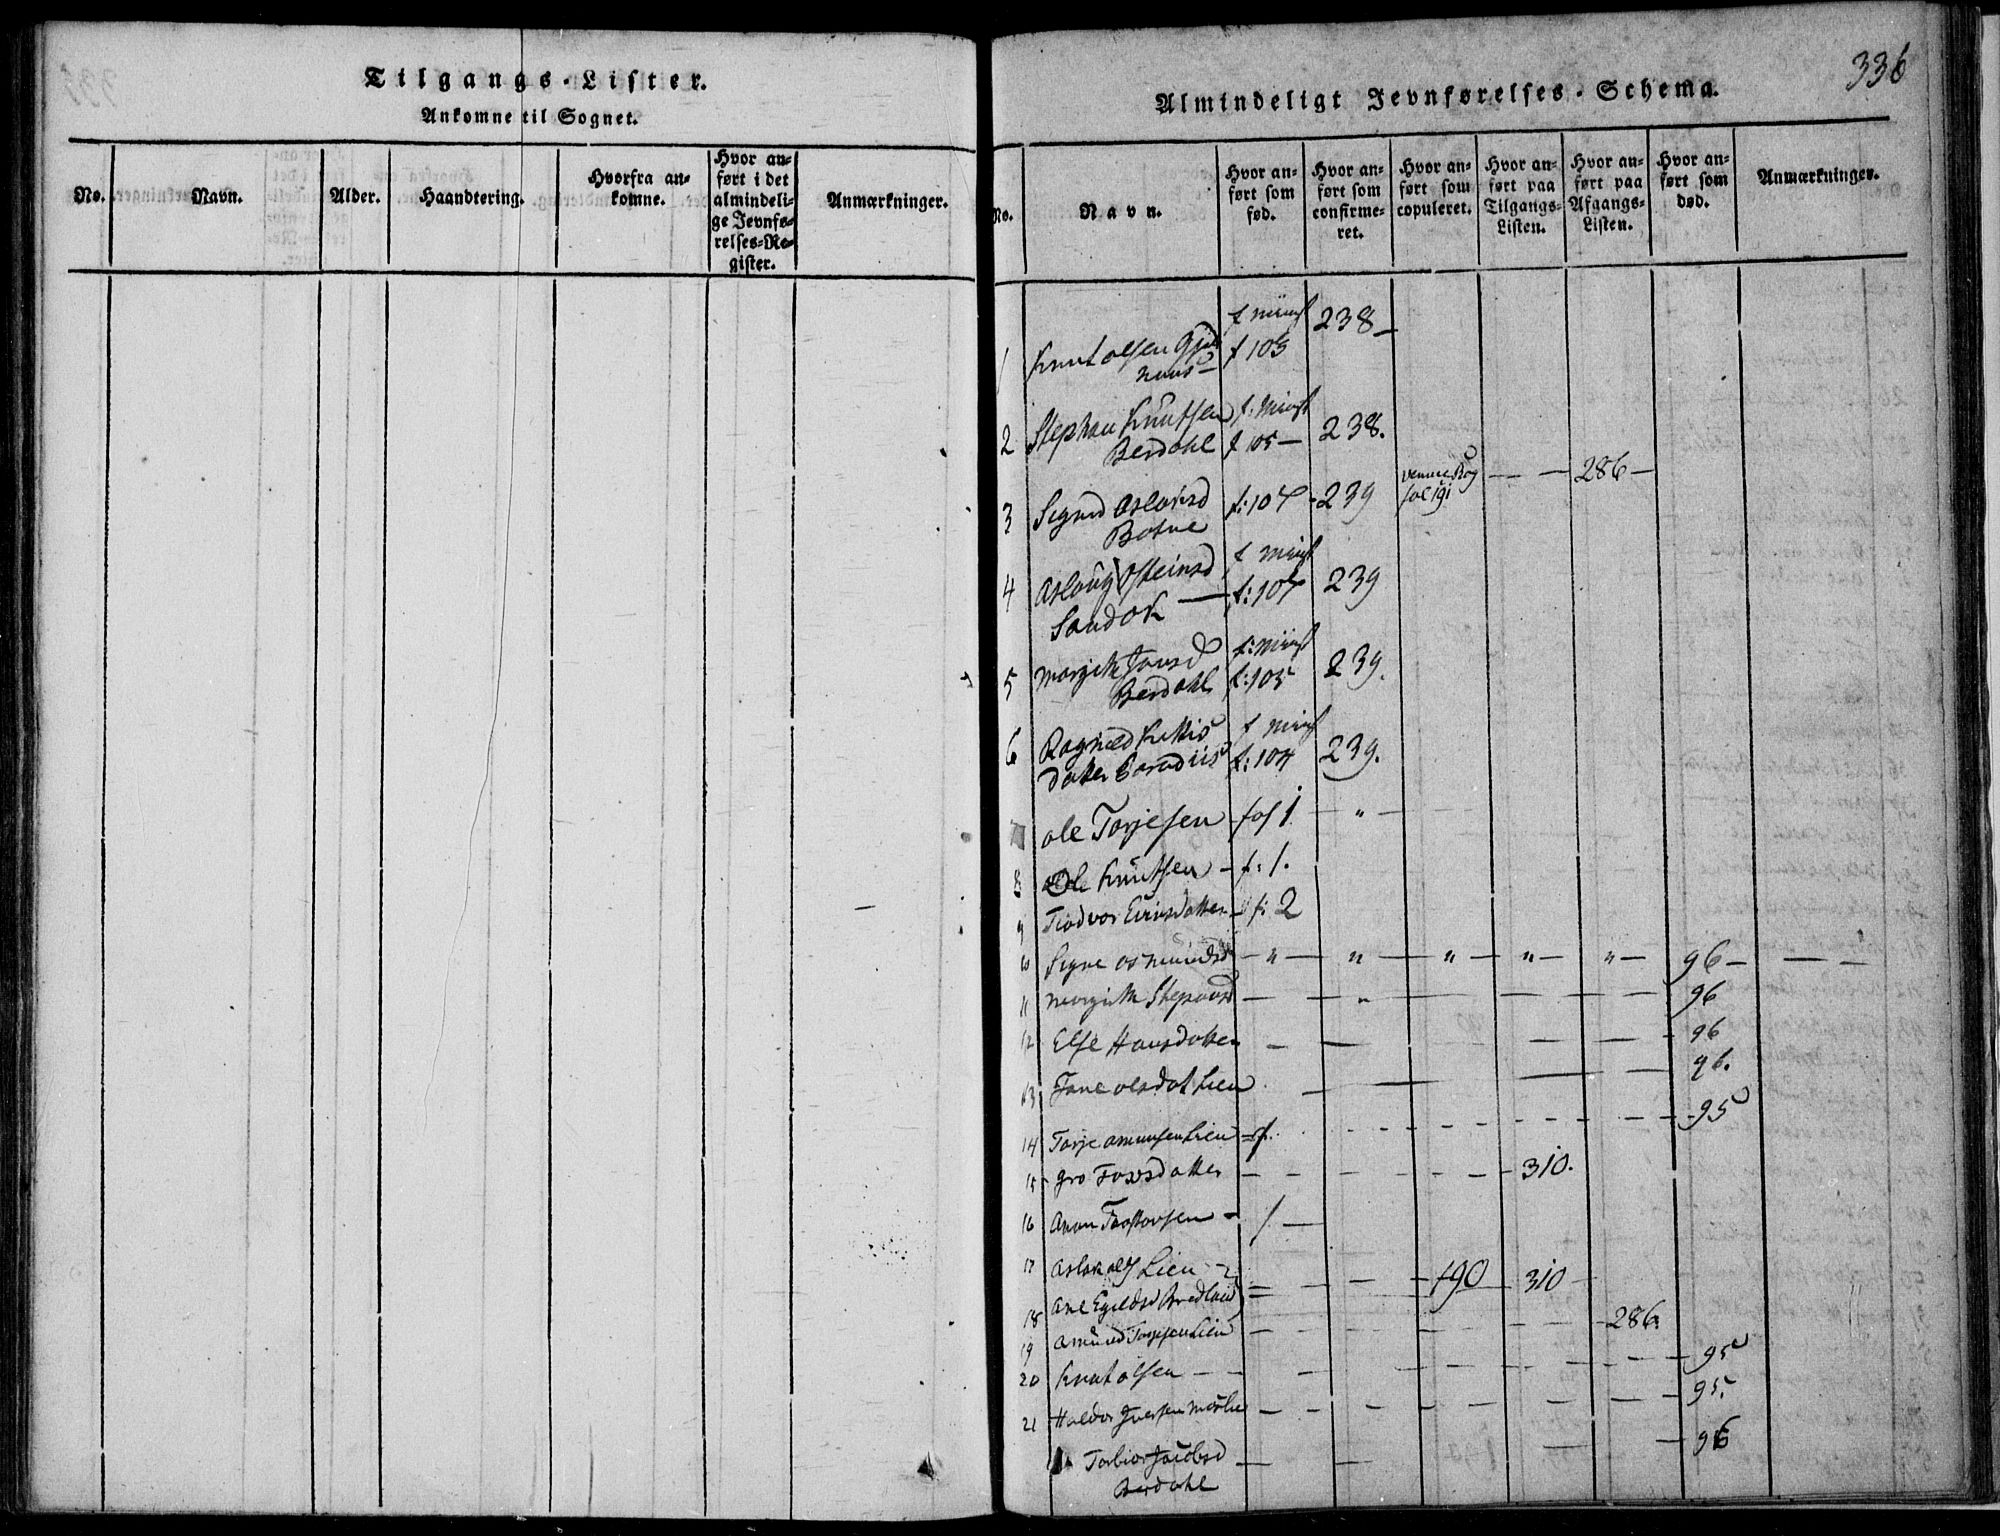 Tilgangs-Lister.
Ankomne til Sognet.
No.
Navn.
Alder.
Haandtering.
Hvorfra an-
komne.
Hvor an-
ført i det
almindeli-
ge Jevnfø-
relses-Re-
gister.
Anmærkninger.
336
Almindeligt Jevnførelses-Schema.
No.
Navn.
Hvor an-
ført som
fød.
Hvor an-
ført som
confirme-
ret.
Hvor an-
ført som
copuleret.
Hvor an-
ført paa
Tilgangs-
Listen.
Hvor an-
ført paa
Afgangs-
Listen.
Hvor an-
ført som
død.
Anmærkninger.
1 Knut Olsen f 105 238-
2 Stephan Knutsen 238.
Berdahl f 105-
3 Signe Aslaksd f: 107 - 239 fol 191 - - 286-
Botne
4 Aslaug Osteinsd
Sandok - f: 107 239
5 Margith Jonsd
Berdahl f: 105 239.
6 Ragnild Kittils
datter f: 104 239.
ole Torjesen fol 1 - " -
8 Ole Knutsen - f: 1.
9 Tiodvor Eivindsdatter - f: 2
10 Signe Osmundsd - " - " - " - " - " - 96 -
11 Margith Stephansd - - " - - - 96
12 Else Hansdatter - - - - - - 96
13 Tone olsdat Lien - - - - 96.
14 Torje amunsen Lien - f. - - - - 95
15 Gro Torsdatter - - - - 310.
16
17 Aslak ols Lien - - 190 - 310
18 Ane Egildsd
19 Amund Torjesen Lien - - - - - 286.
20 Knut olsen - - - - - - 95
21 Haldor Iversen - - - - - - 95.
Torbior Jacobsd - - - - 96
Berdahl